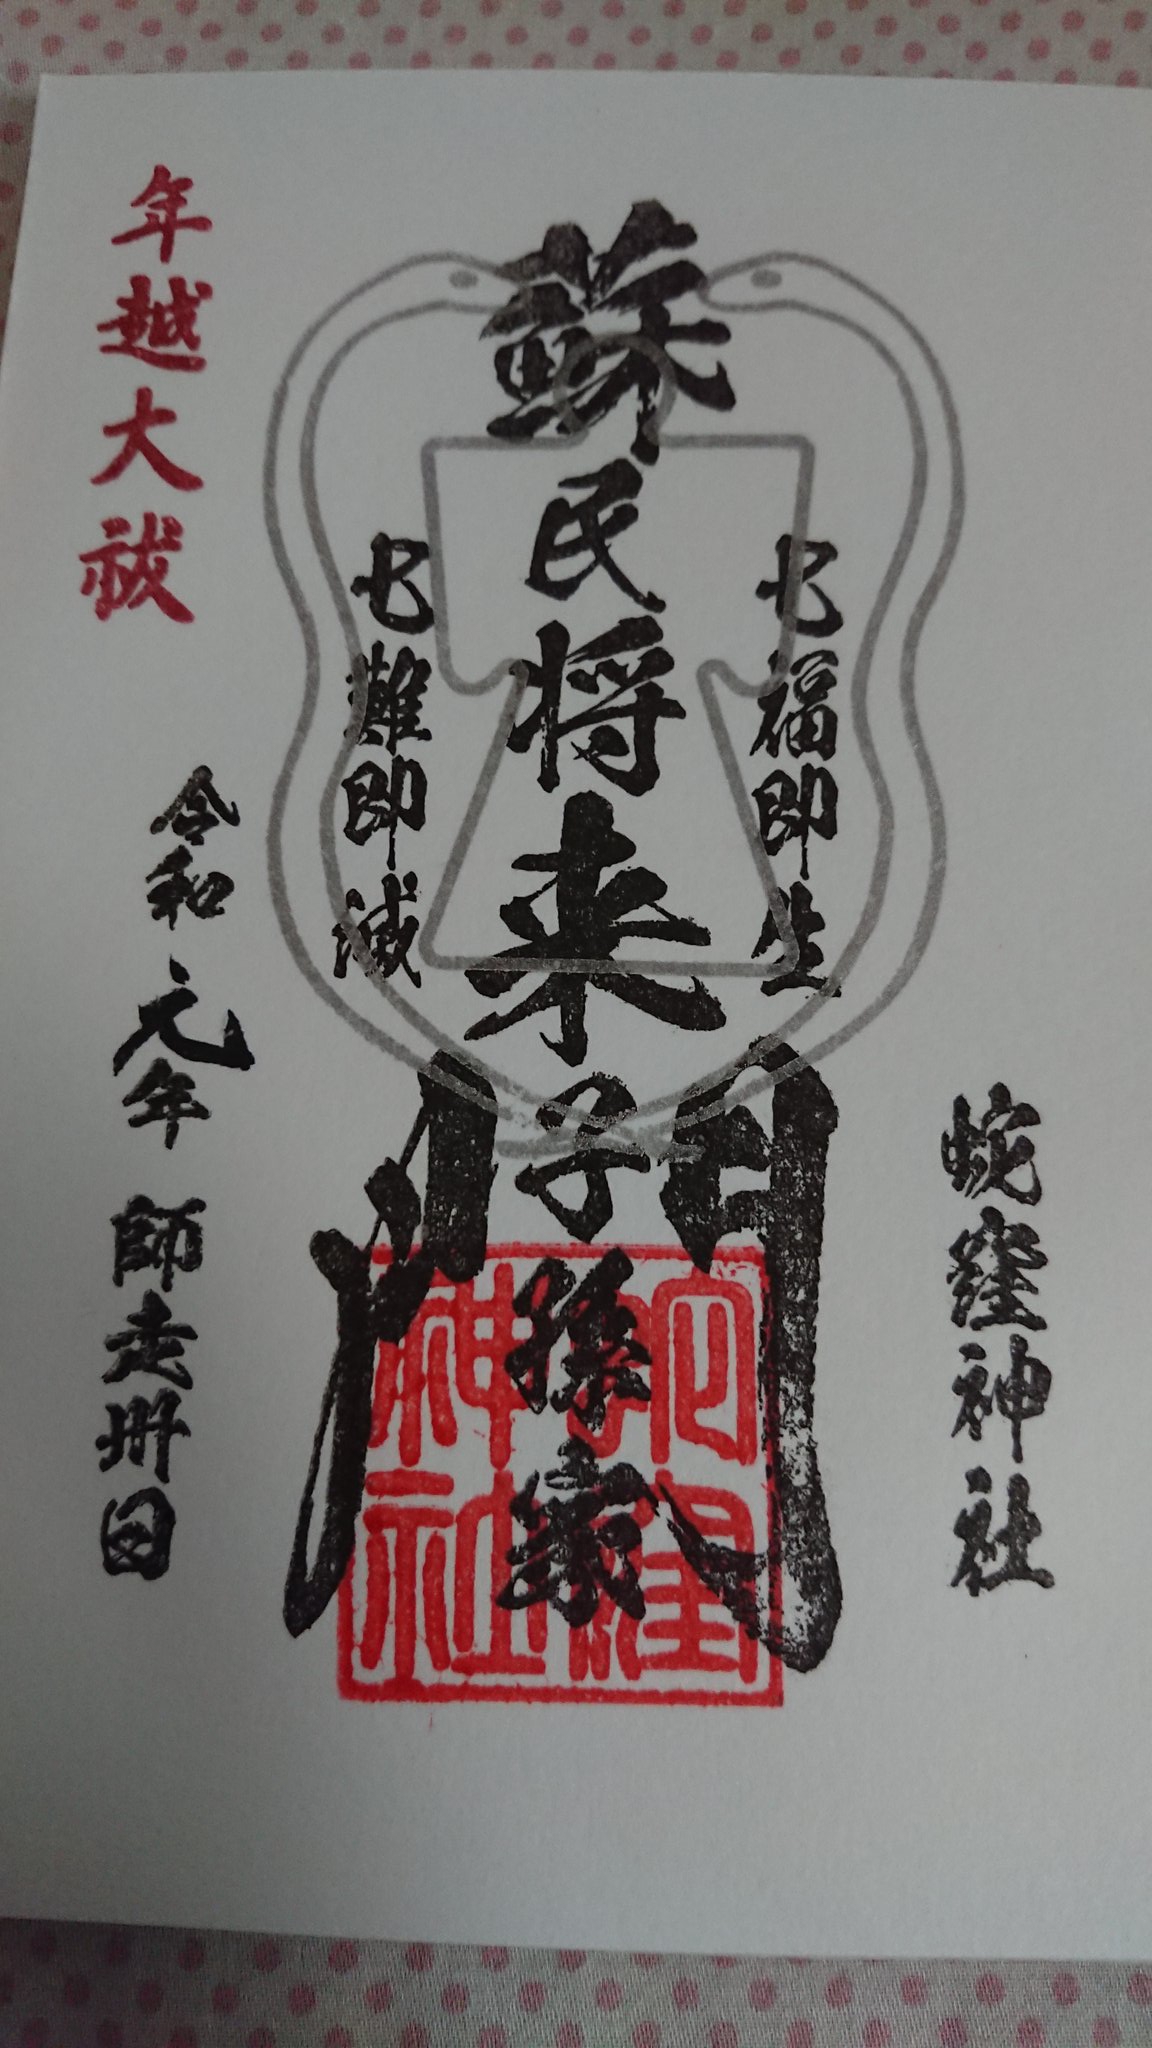 蛇窪神社
七福即生
蘇民将来子孫家
門
七難即滅
年越大祓
令和元年 師走卅日
蛇窪
神社